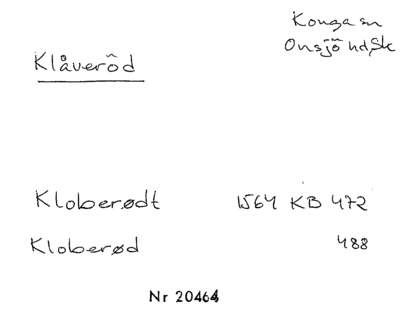 Konga sn
Onsjö hd, Sk
Klåveröd
Kloberødt 1564 KB 472
Kloberød 488
Nr 20464